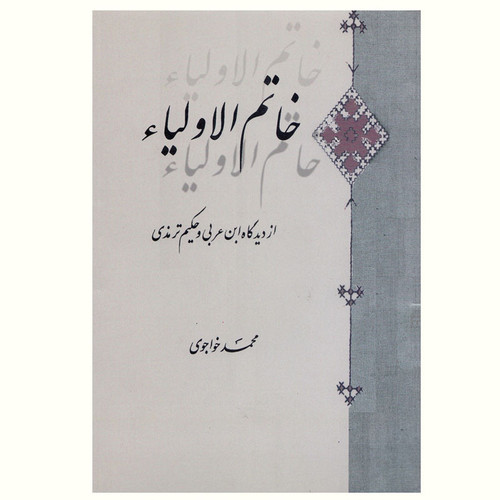 خاتم الاولیاء
خاتم الاولیاء
خاتم الاولیاء
از دیدگاه ابن عربی و حکیم ترمذی
محمد خواجوی